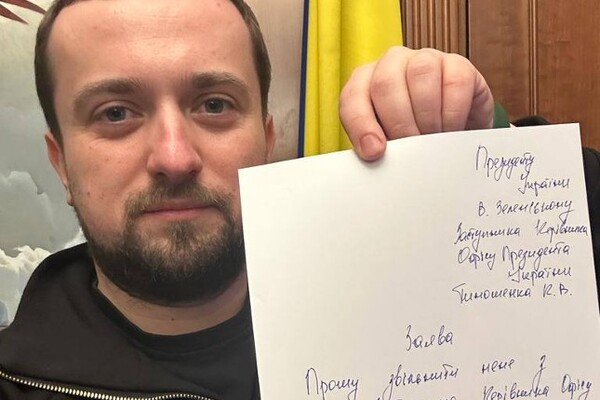 Президенту
України
В. Зеленському
Заступника Керівника
Офісу Президента
України
Тимошенка К.В.
Заява
Прошу звільнити мене з
Керівника Офісу